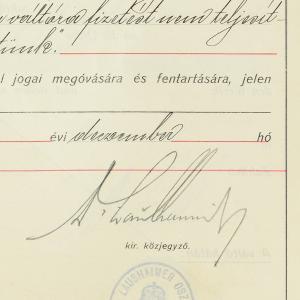 váltóra fizetést nem teljesít-
tünk".
l jogai megóvására és fentartására, jelen
évi deczember hó
kir. közjegyző.